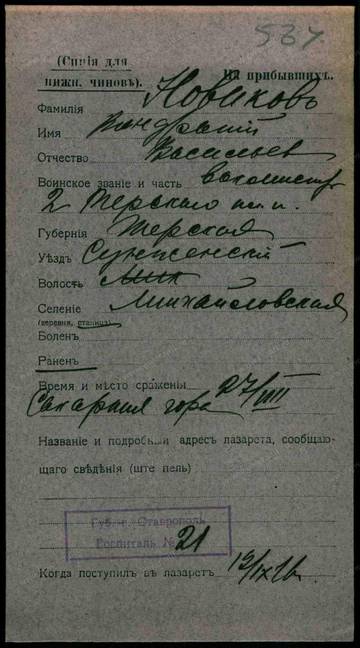 537
(Синія для
нижн. чиновъ).
На прибывшихъ.
Фамилія Новиковъ
Имя Кондратій
Отчество Васильев
Воинское званіе и часть
2 Терскаго пл.
Губернія Терская
Уѣздъ Сунженскій
Волость Мих
Селеніе Михайловская
(деревня, станица)
Боленъ
Раненъ
Время и мѣсто сраженія 27/VIII
гора
Названіе и подробный адресъ лазарета, сообщаю-
щаго свѣдѣнія (штемпель)
Губ. г. Ставрополь
Госпиталь № 21
Когда поступилъ въ лазаретъ 19/IX 16.